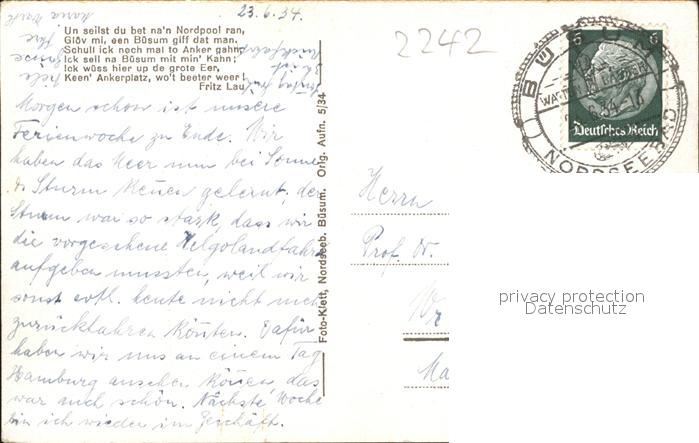 23.6.34.
Un seilst du bet na'n Nordpool ran,
Glöv mi, een Büsum giff dat man.
Schull ick noch mal to Anker gahn,
Ick sell na Büsum mit min' Kahn;
Ick wüss hier up de grote Eer,
Keen' Ankerplatz, wo't beeter weer!
Fritz Lau
Morgen schon ist unsere
Ferienwoche zu Ende. Wir
haben das Meer nun bei Sonne
& Sturm kennen gelernt; der
Sturm war so stark, dass wir
die vorgesehene Helgolandfahrt
aufgeben mussten, weil wir
sonst evtl. heute nicht mehr
zurückfahren könnten. Dafür
haben wir uns an einem Tag
Hamburg ansehen können, das
war auch schön. Nächste Woche
bin ich wieder im Geschäft.
Foto-Klett, Nordseeb. Büsum. Orig. Aufn. 5/34
2242
6 6
Deutsches Reich
BÜSUM
NORDSEEBAD
Herrn
Prof. Dr.
Wr
Ma
privacy protection
Datenschutz